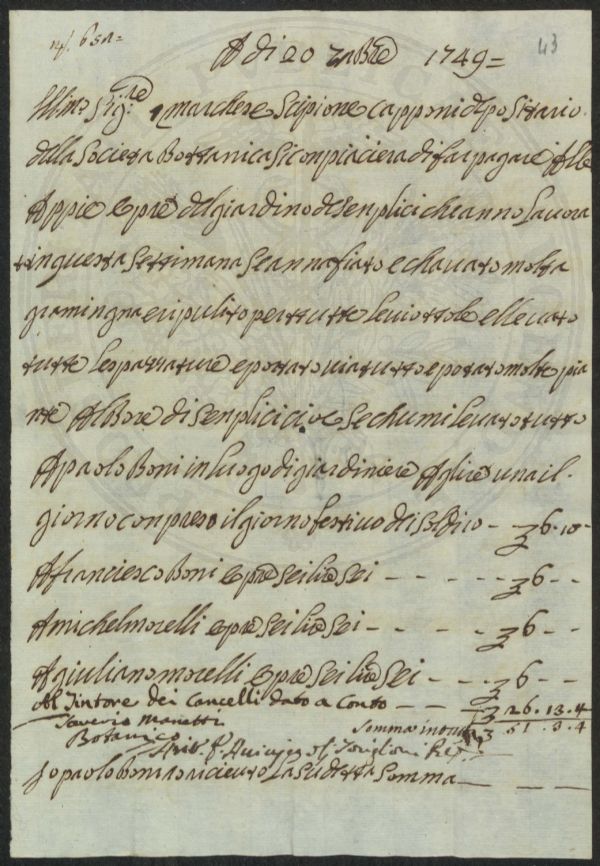 A di 20 7mbre 1749 =
43
Illmo Sigre marchese Scipione Capponi depositario
della Societa Bottanica Si conpiaciera di far pagare Alle
Appie opre del giardino de senplici che anno Lavora
to in questa Settimana Se annafiato e chavato molta
gramingna e ripulito per tutte le viottole e llevato
tutte le spazzature e portato via tutto e potato molte pia
nte Al Bore di senplici cioe Sechumi levato tutto
A paolo Boni in luogo di giardiniere A lire una il
giorno conpreso il giorno festivo di Soldi 10 - - 6.10 -
A franciesco Boni opre sei lire sei - - - - - 6 - -
A michel morelli opre sei lire sei - - - - 6 - -
A giuliano morelli opre sei lire sei - - - 6 - -
Al Tintore dei Cancelli dato a Conto - - 26.13.4
Saverio Manetti
Somma in tutto 51.3.4
Botanico
Io paolo Boni o ricieuto La Sudetta Somma